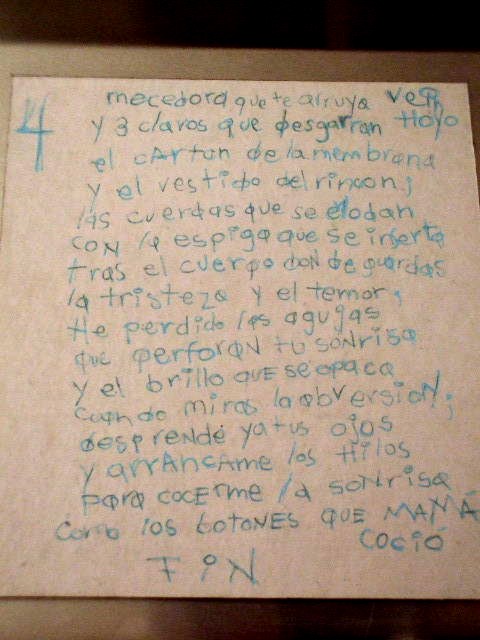 4
mecedora que te arruya
y 3 clavos que desgarran Hoyo
el cArtón de la membrana
y el vestido del rincon;
las cuerdas que se elodan
con la espiga que se inserta
tras el cuerpo donde guardas
la tristeza y el temor;
He perdido las agujas
que perforan tu sonrisa
y el brillo que se opaca
cuando miras la obversion;
desprende ya tus ojos
y arrancame los Hilos
para cocerme la sonrisa
como los botones que MAMÁ
coció
FiN